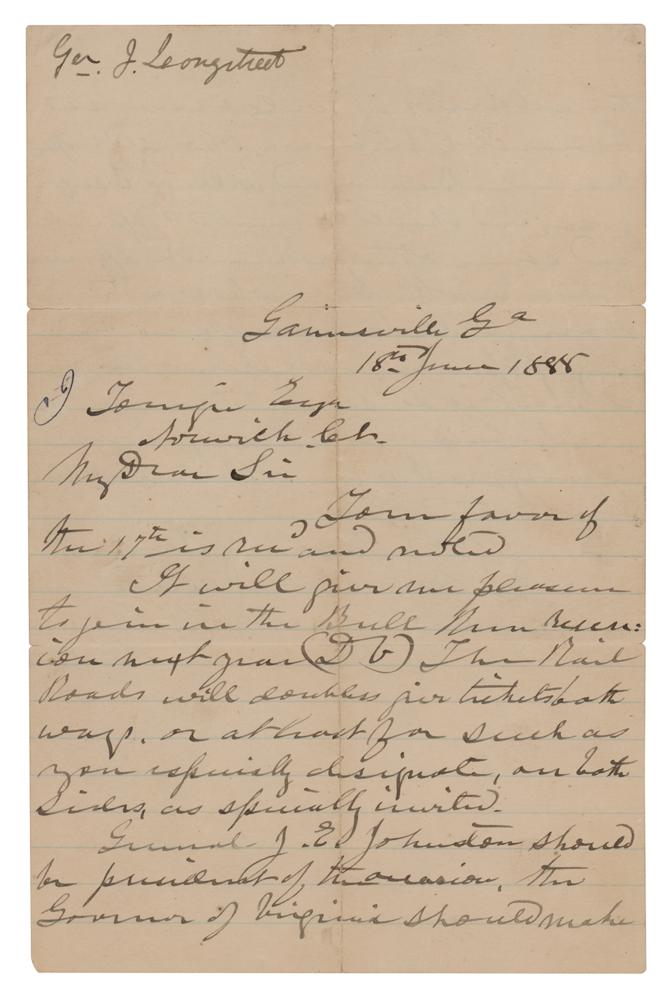 Gen. J. Longstreet
Gainesville Ga
18th June 1888
Esqr
Norwich Ct.
My Dear Sir
Your favor of
the 17th is rec'd and noted
It will give me pleasure
to join in the Bull Run reun:
ion next year (D V) The Rail
Roads will doubless give tickets both
ways, or at least for such as
you especially designate, on both
Sides, as specially invited.
General J. E. Johnston should
be president of the occasion, the
Governor of Virginia should make